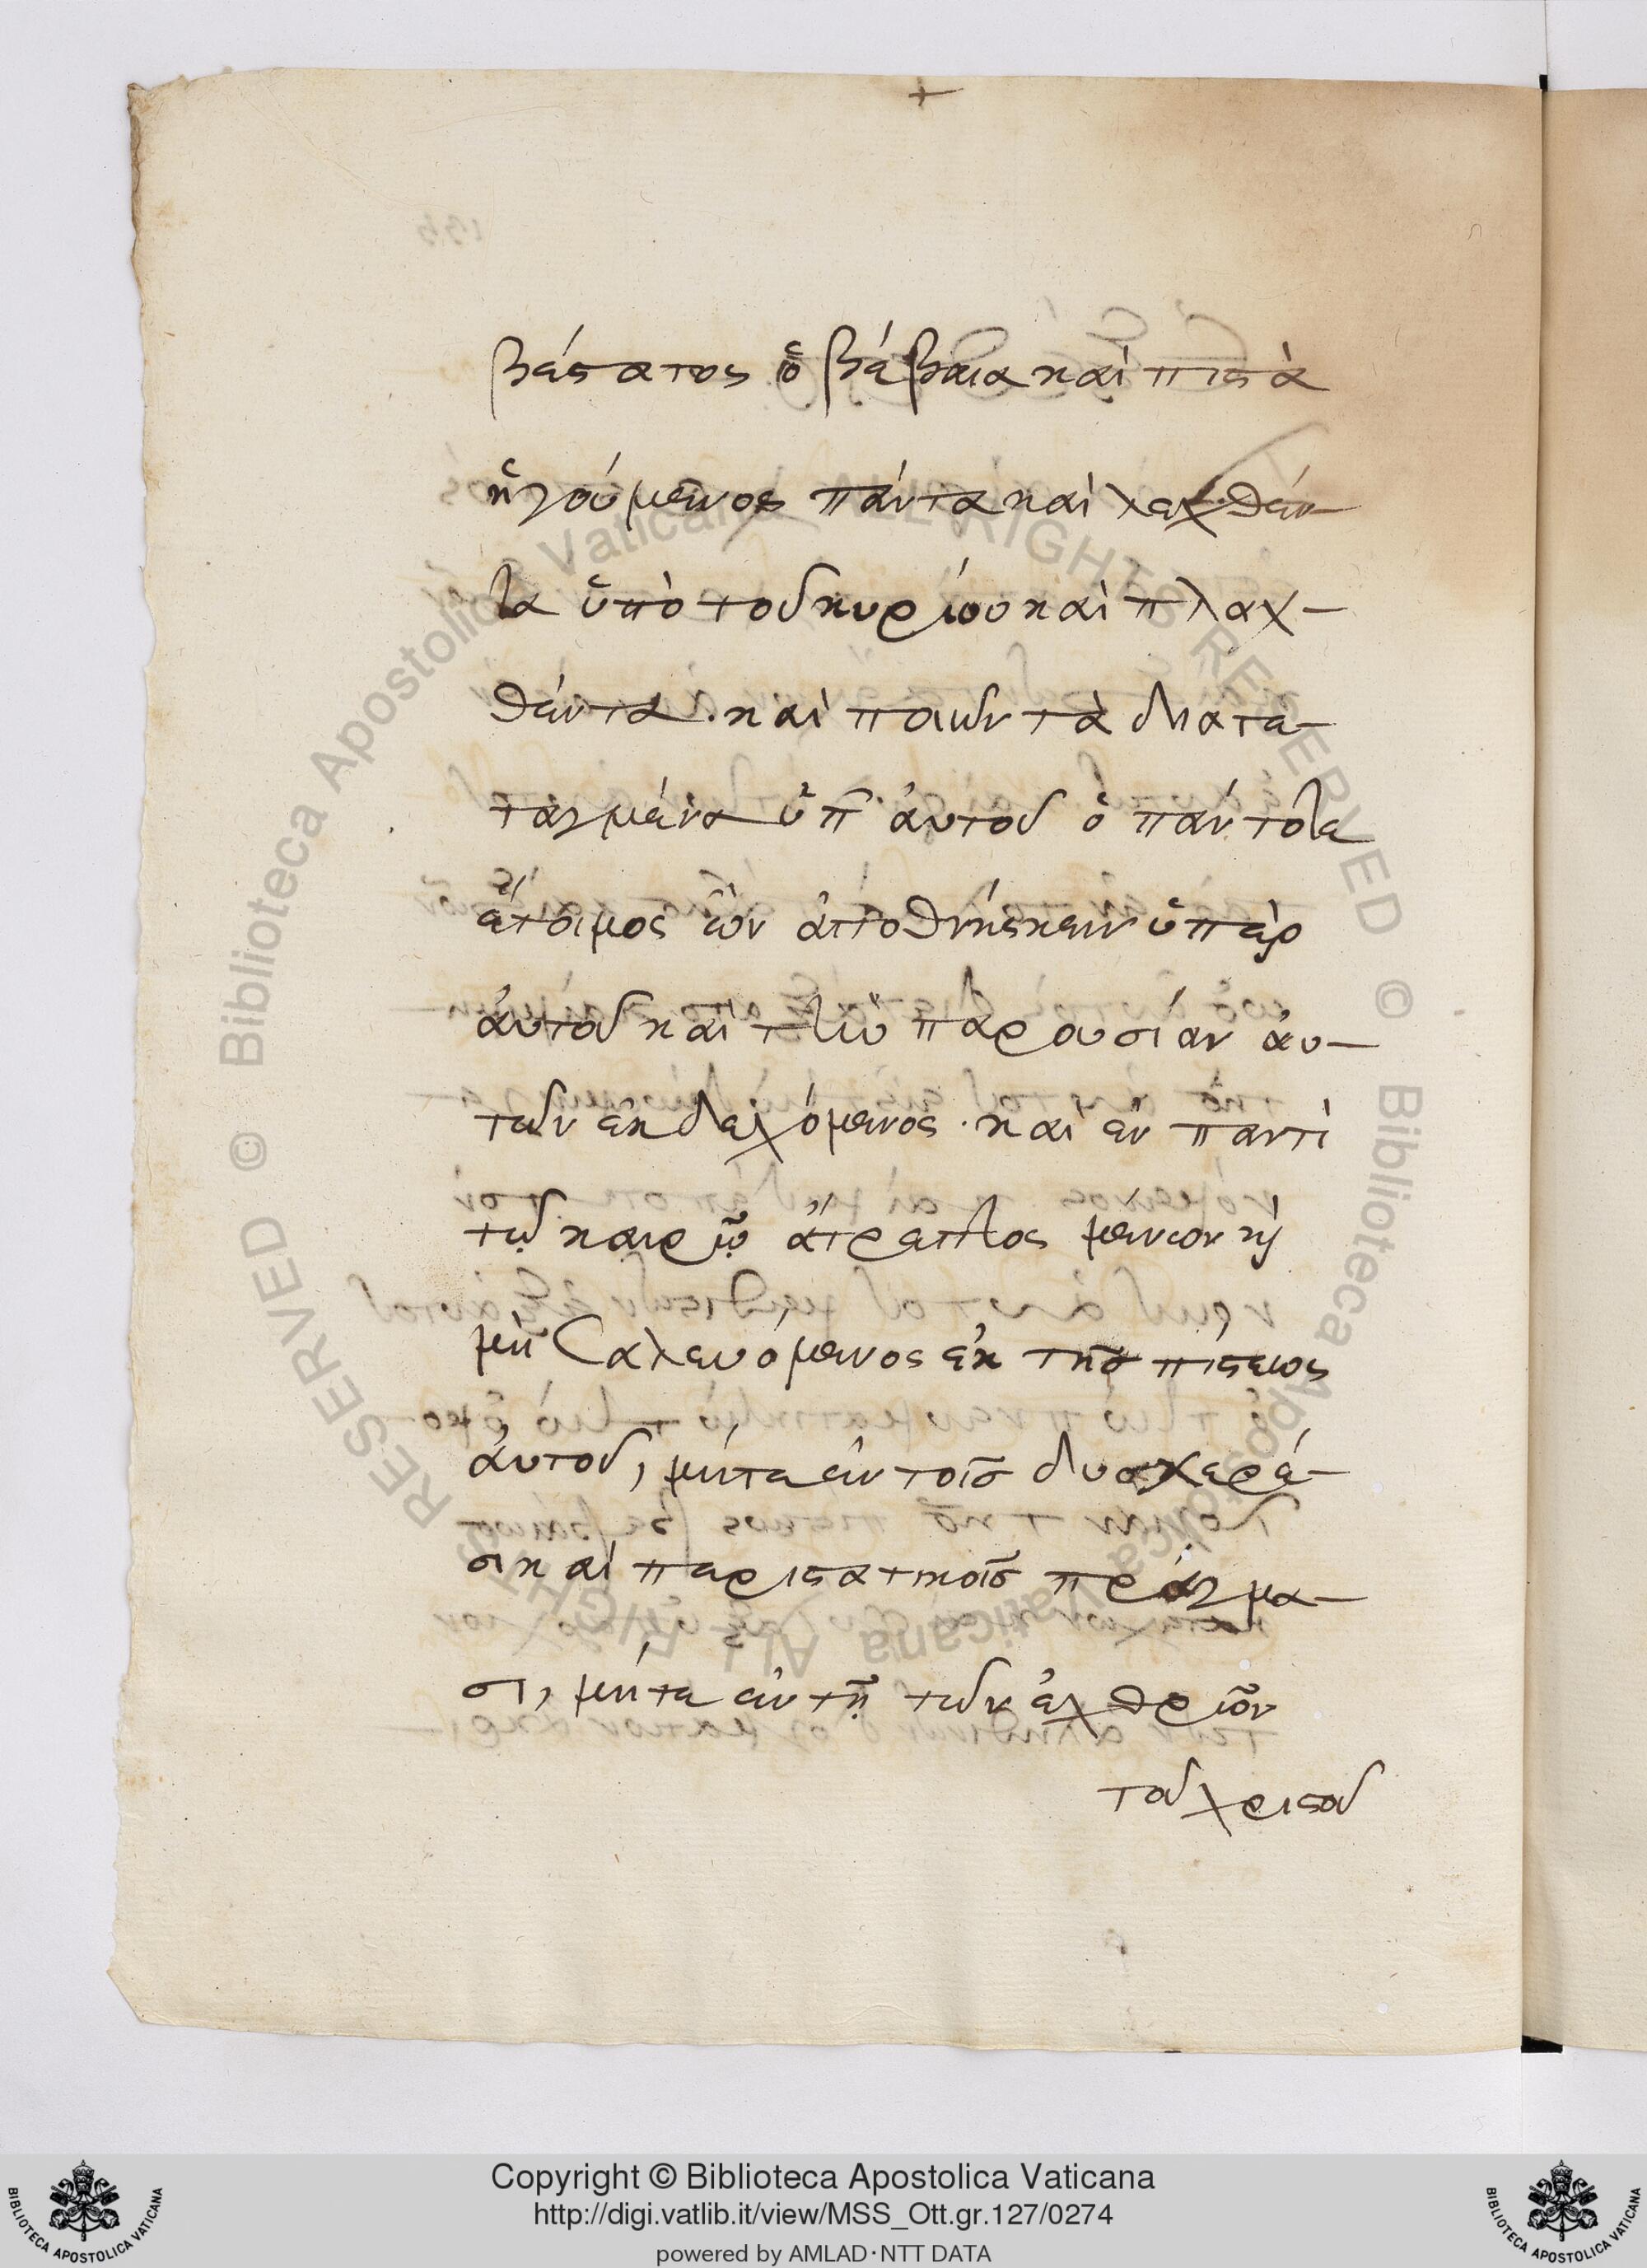 βέστατος ὁ βέβαια καὶ πιστὰ
ἡγούμενος πάντα καὶ λεχθέν-
τα ὑπὸ τοῦ κυρίου καὶ πλαχ-
θέντα. καὶ ποιῶν τὰ διατε-
ταγμένα ὑπ' ἀυτοῦ ὁ πάντοτε
ἕτοιμος ὢν ἀποθνήσκειν ὑπὲρ
ἀυτοῦ καὶ τὴν παρουσίαν ἀυ-
τῶν ἐκδεχόμενος. καὶ ἐν παντὶ
τῷ καιρῷ ἄτρεπτος μένων κὶ
μὴ σαλευόμενος ἐκ τῆσ πίστεως
ἀυτοῦ, μήτε ἐν τοῖσ δυσχερέ-
σι καὶ περιστατικοῖσ πράγμα-
σι, μήτε ἐν τῇ τῶν ἐχθρῶν
τοῦ χριστοῦ
Copyright © Biblioteca Apostolica Vaticana
http://digi.vatlib.it/view/MSS_Ott.gr.127/0274
powered by AMLAD·NTT DATA
BIBLIOTECA APOSTOLICA VATICANA
BIBLIOTECA APOSTOLICA VATICANA